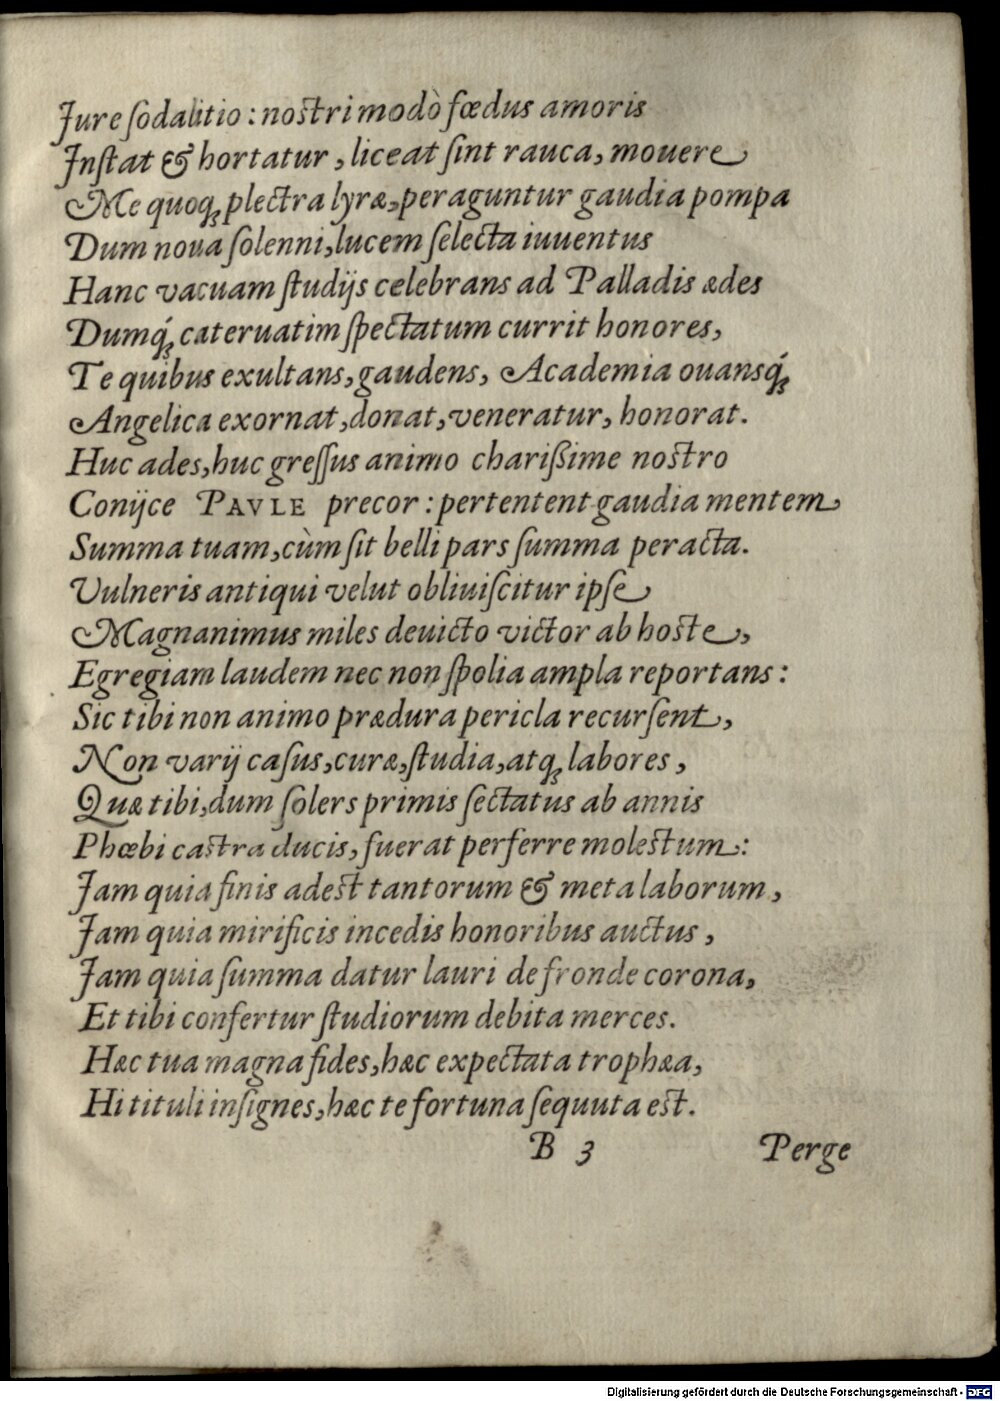 Jure ſodalitio : noſtri modò fœdus amoris
Jnſtat & hortatur, liceat ſint rauca, mouere
Me quoq; plectra lyræ, peraguntur gaudia pompa
Dum noua ſolenni, lucem ſelecta iuuentus
Hanc vacuam ſtudijs celebrans ad Palladis ædes
Dumq́; cateruatim ſpectatum currit honores,
Te quibus exultans, gaudens, Academia ouansq́;
Angelica exornat, donat, veneratur, honorat.
Huc ades, huc greſſus animo charißime noſtro
Conijce PAVLE precor : pertentent gaudia mentem
Summa tuam, cùm ſit belli pars ſumma peracta.
Vulneris antiqui velut obliuiſcitur ipſe
Magnanimus miles deuicto victor ab hoſte,
Egregiam laudem nec non ſpolia ampla reportans :
Sic tibi non animo prædura pericla recurſent,
Non varij caſus, curæ, ſtudia, atq; labores,
Quæ tibi, dum ſolers primis ſectatus ab annis
Phœbi caſtra ducis, fuerat perferre moleſtum :
Jam quia finis adeſt tantorum & meta laborum,
Jam quia mirificis incedis honoribus auctus,
Jam quia ſumma datur lauri de fronde corona,
Et tibi confertur ſtudiorum debita merces.
Hæc tua magna fides, hæc expectata trophæa,
Hi tituli inſignes, hæc te fortuna ſequuta eſt.
B 3 Perge
Digitalisierung gefördert durch die Deutsche Forschungsgemeinschaft - DFG